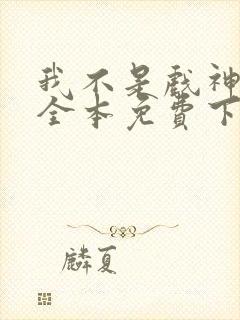 我不是戏神
全本免費下
麟夏